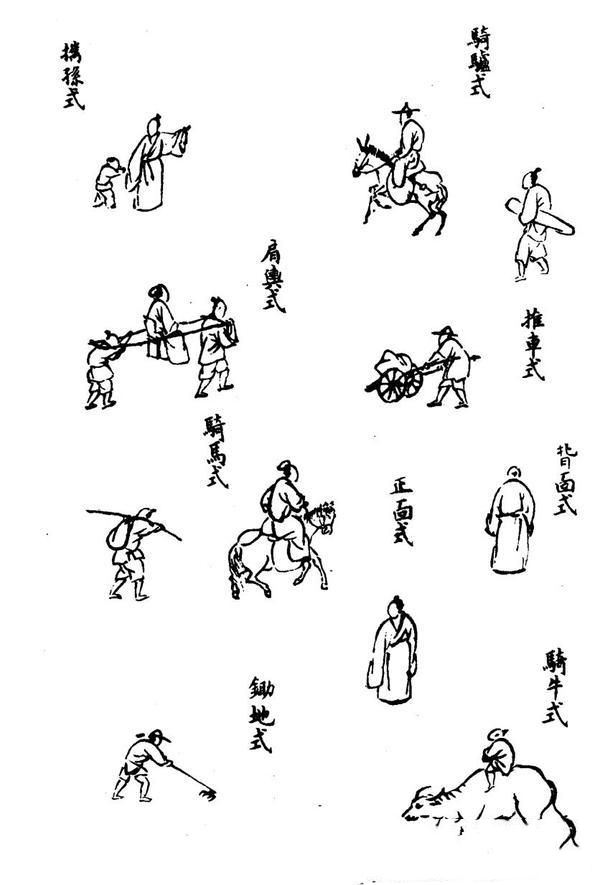 騎驢式
攜孫式
肩輿式
推車式
騎馬式
背面式
正面式
騎牛式
鋤地式